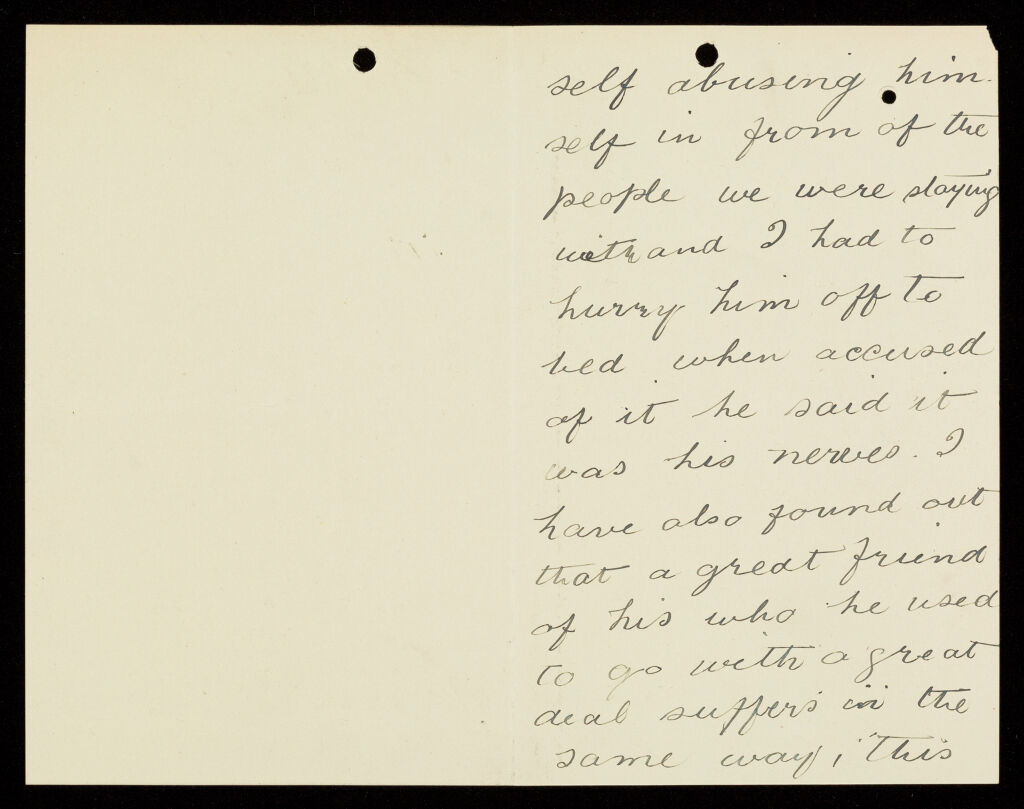 self abusing him-
self in from of the
people we were staying
with and I had to
hurry him off to
bed when accused
of it he said it
was his nerves. I
have also found out
that a great friend
of his who he used
to go with a great
deal suffers in the
same way, this